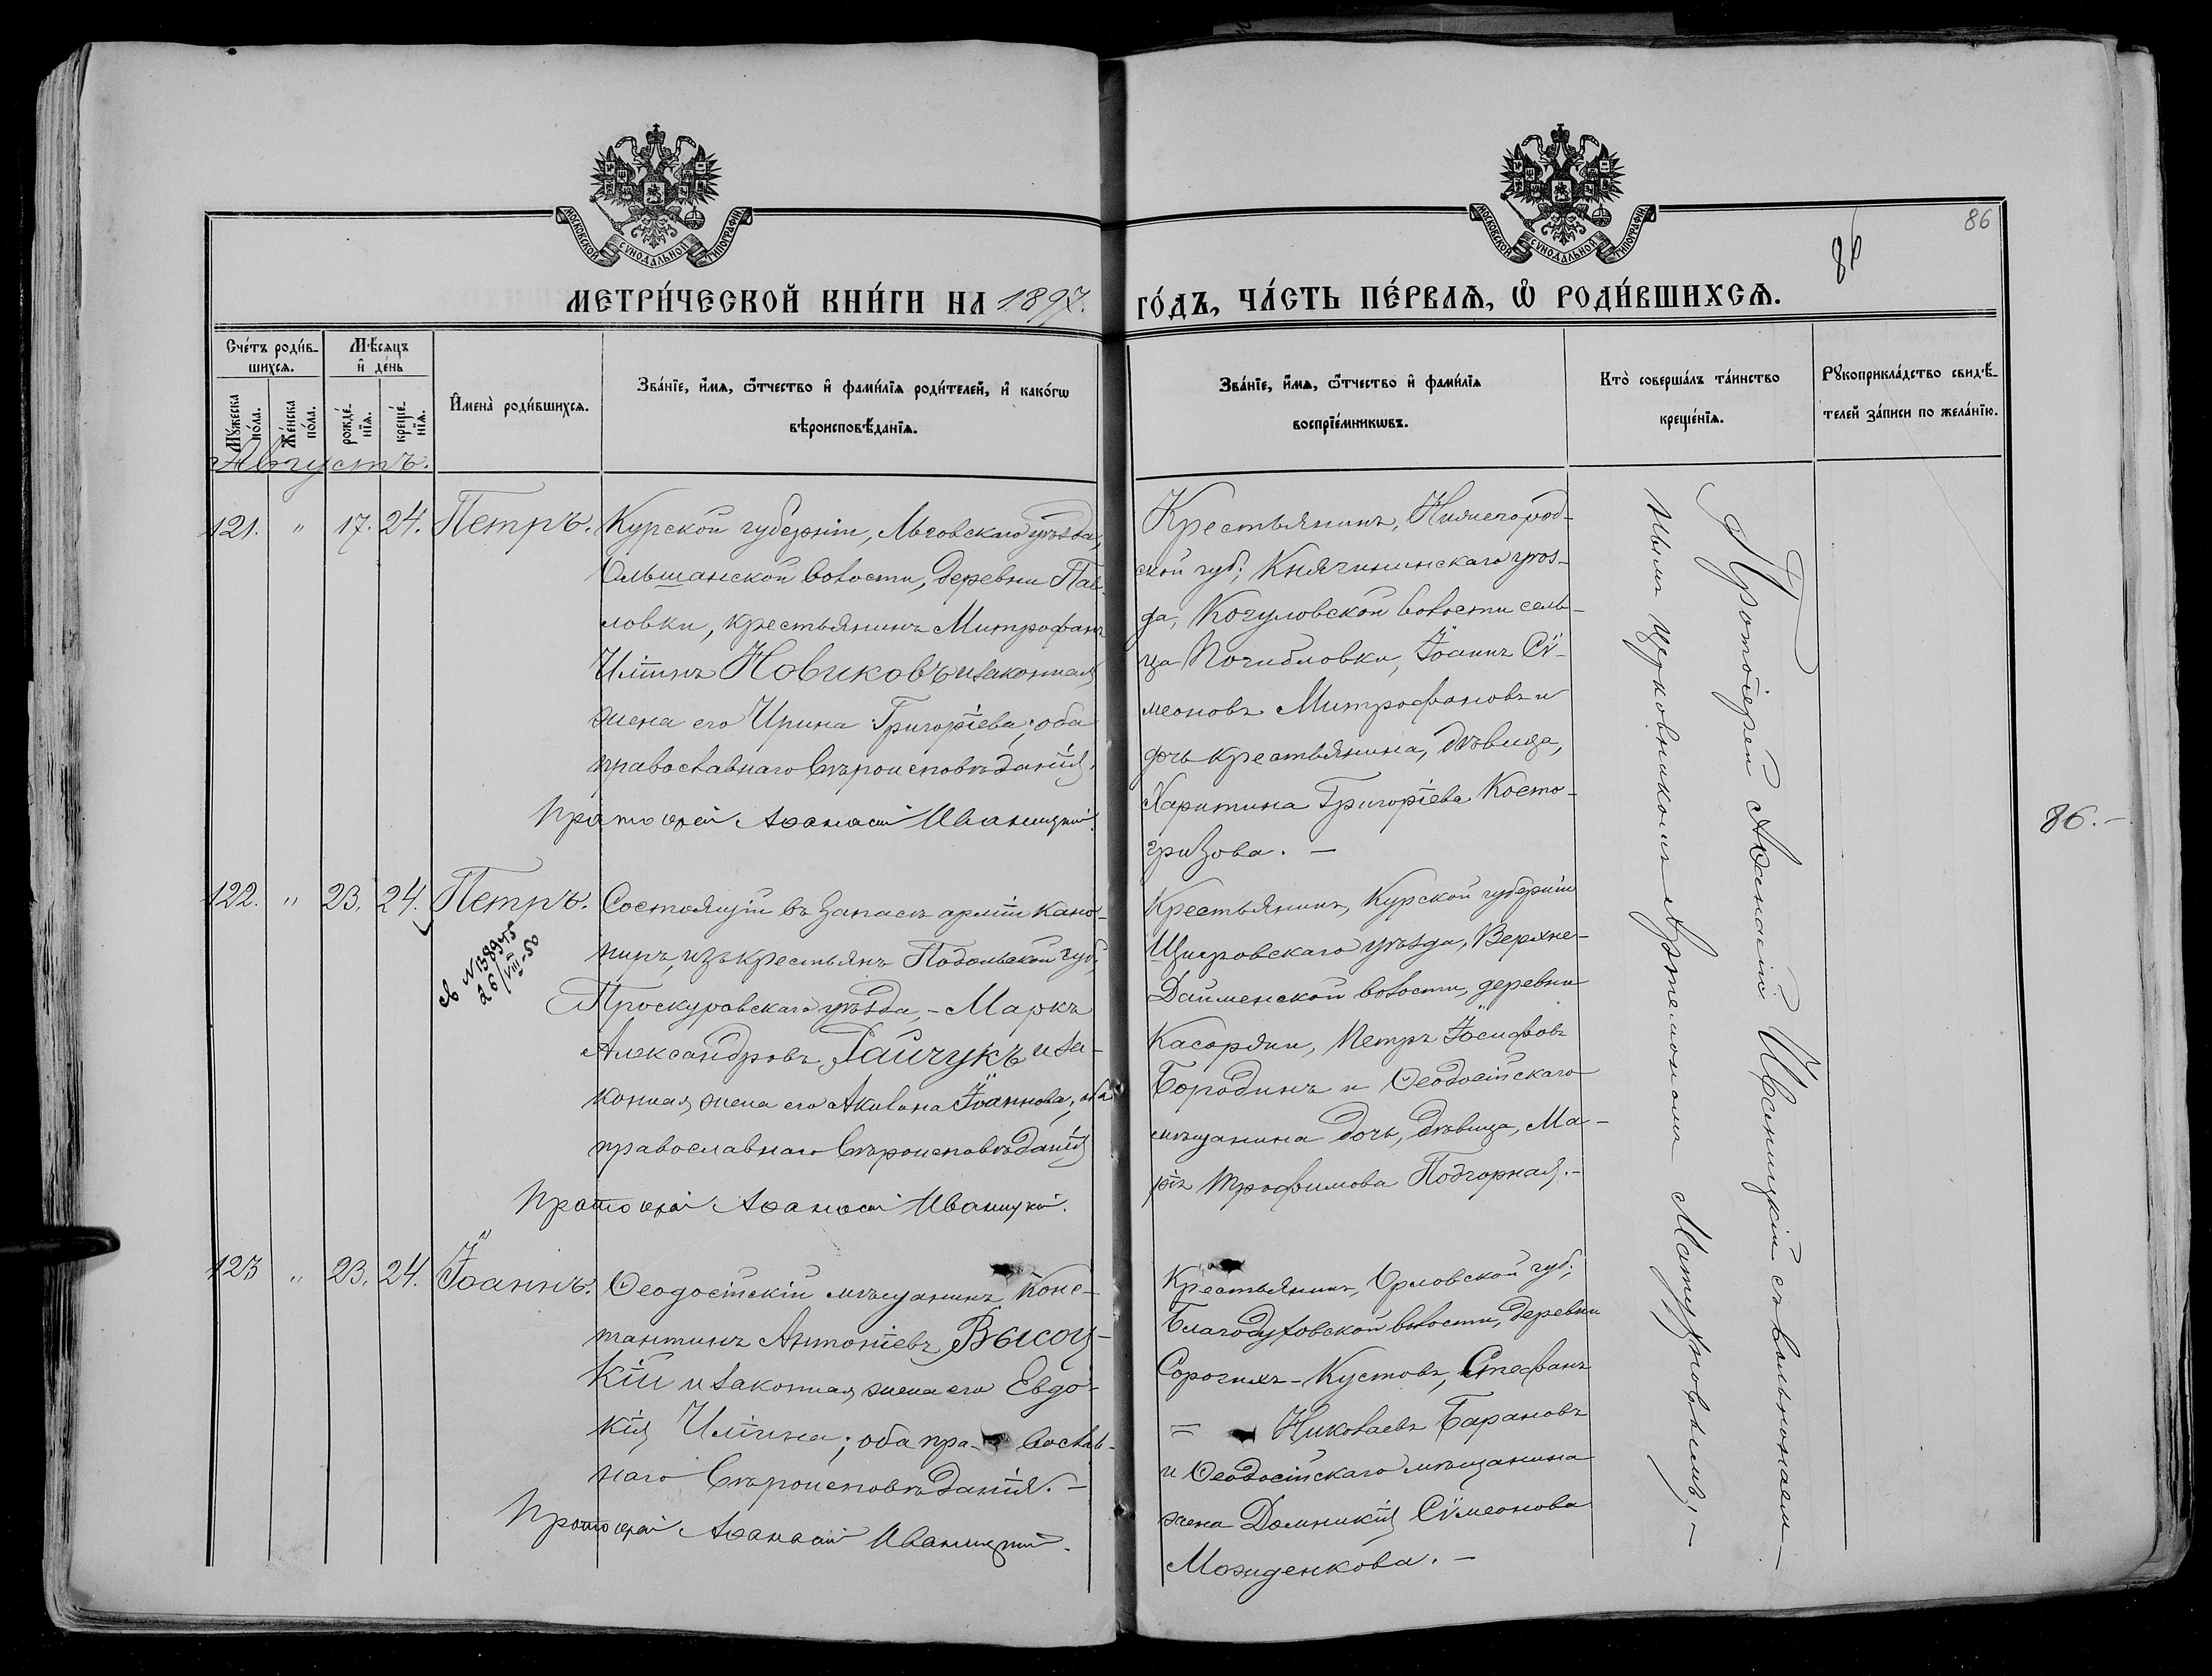 86
86
МОСКОВСКОЙ СѴНОДАЛЬНОЙ ТИПОГРАФІИ
МОСКОВСКОЙ СѴНОДАЛЬНОЙ ТИПОГРАФІИ
МЕТРИ́ЧЕСКОЙ КНИ́ГИ НА 1897.
ГО́ДЪ, ЧА́СТЬ ПЕ́РВАѦ, Ѽ РОДИ́ВШИХСѦ.
Сче́тъ роди́в-
шихсѧ.
Мѣ́сѧцъ
и҆ де́нь
Мꙋ́жеска
по́ла.
Же́нска
по́ла.
рожде́-
нїѧ.
креще́-
нїѧ.
И҆мена̀ роди́вшихсѧ.
Зва́нїе, и҆́мѧ, ѻ҆́тчество и҆ фами́лїѧ роди́телей, и҆ како́гѡ
вѣроисповѣ́данїѧ.
Зва́нїе, и҆́мѧ, ѻ҆́тчество и҆ фами́лїѧ
воспрїе́мникѡвъ.
Кто̀ соверша́лъ та́инство
креще́нїѧ.
Рꙋкоприкла́дство свидѣ́-
телей за́писи по жела́нїю.
Августъ.
121. " 17. 24. Петръ.
Курской губерніи, Льговскаго уѣзда,
Ольшанской волости, деревни Пав-
ловки, крестьянинъ Митрофанъ
Иліинъ Новиковъ и законная
жена его Ирина Григоріева; оба
православнаго вѣроисповѣданія.
Протоіерей Аѳанасій Иваницкій.
Крестьянинъ, Нижегород-
ской губ; Княгининскаго уѣз-
да, Кочуловской волости сель-
ца Погибловки, Іоаннъ Сѵ-
меоновъ Митрофановъ и
дочь крестьянина, дѣвица,
Харитина Григоріева Косто-
гризова. —
122. " 23. 24. Петръ.
св N 138945
26/VIII-50
Состоящій въ запасѣ арміи кано-
ниръ, изъ крестьянъ Подольской губ;
Проскуровскаго уѣзда, - Маркъ
Александровъ Гайчукъ и за-
конная жена его Акилина Іоаннова; оба
православнаго вѣроисповѣданія
Протоіерей Аѳанасій Иваницкій.
Крестьянинъ, Курской губерніи
Щигровскаго уѣзда, Верхне-
Дайменской волости, деревни
Касоржи, Петръ Іосифовъ
Бородинъ и Ѳеодосійскаго
мѣщанина дочь, дѣвица, Ма-
рія Трофимова Подгорная. -
123 " 23. 24. Іоаннъ.
Ѳеодосійскій мѣщанинъ Конс-
тантинъ Антоніевъ Высоц-
кій и законная жена его Евдо-
кія Иліина; оба пра- вослав-
наго вѣроисповѣданія. -
Протоіерей Аѳанасій Иваницкій.
Крестьянинъ, Орловской губ;
Благодуховской волости, деревни
Сорочихъ-Кустовъ, Стефанъ
= Николаевъ Барановъ
и Ѳеодосійскаго мѣщанина
жена Домникія Сѵмеонова
Можденкова. -
Протоіерей Аѳанасій Иваницкій съ вольнонаем-
нымъ церковникомъ Артемономъ Матузновымъ. -
86. -